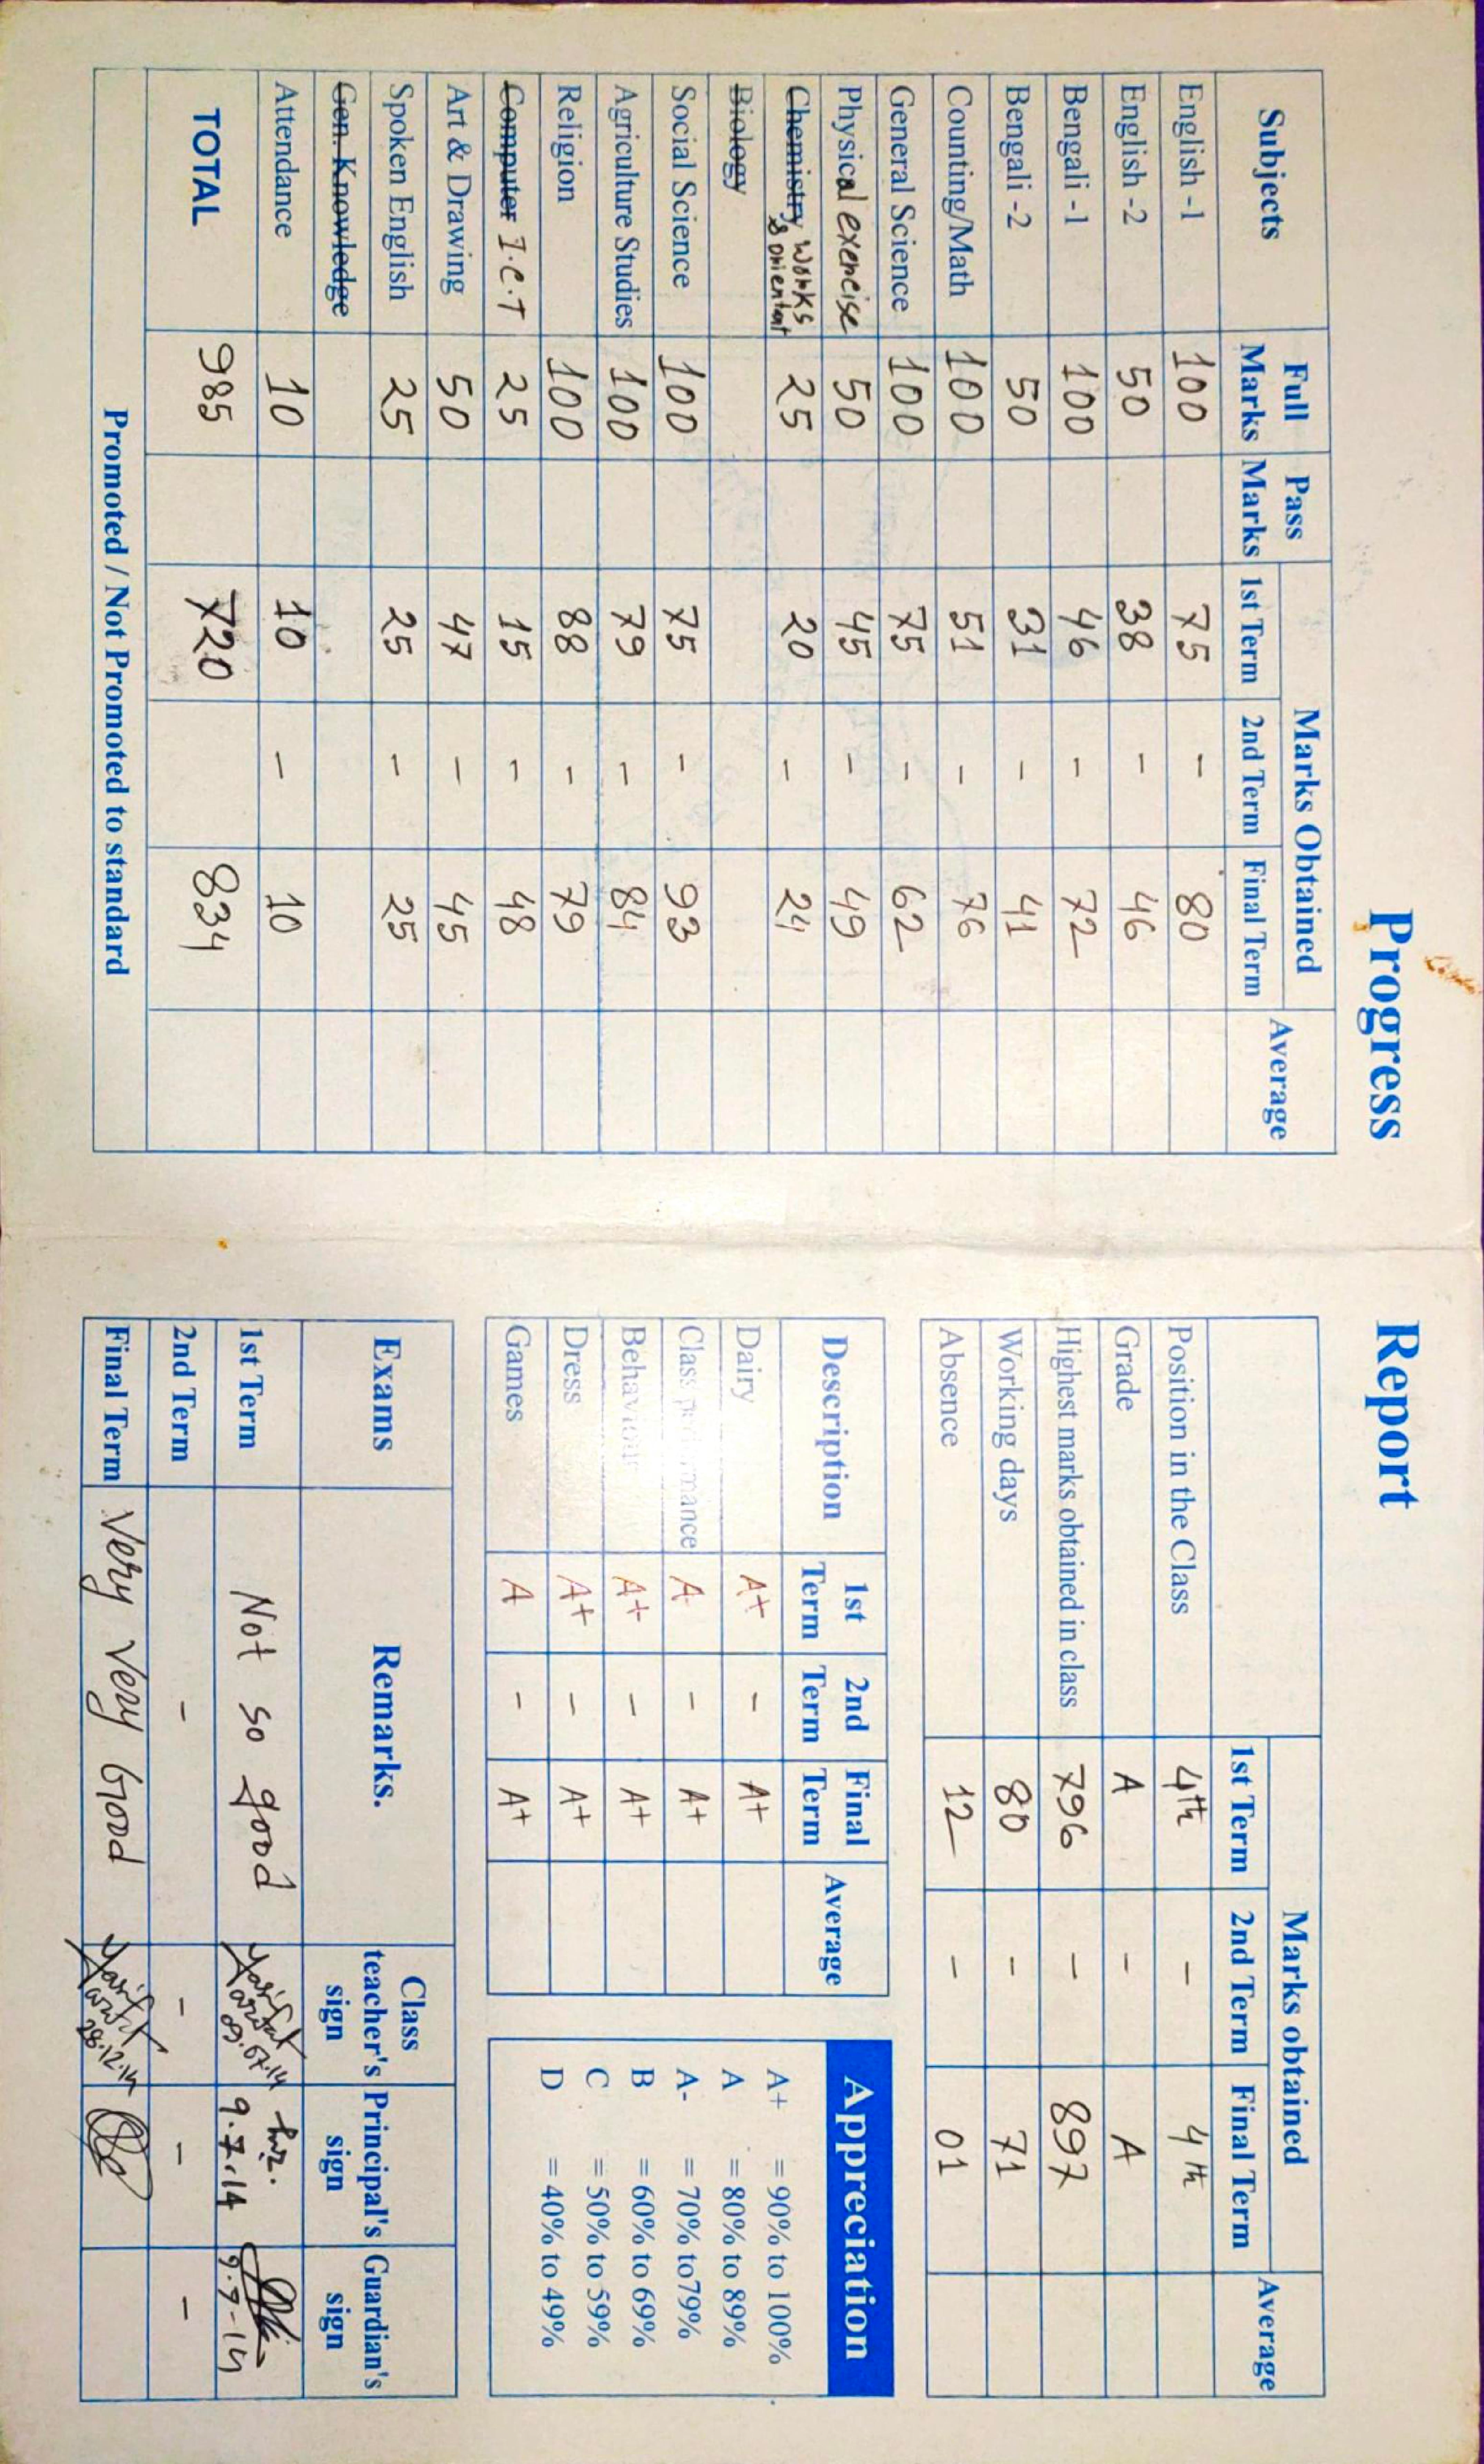 Progress Report
Subjects Full Marks Pass Marks Marks Obtained Average
1st Term 2nd Term Final Term
English -1 100 75 - 80
English -2 50 38 - 46
Bengali -1 100 46 - 72
Bengali -2 50 31 - 41
Counting/Math 100 51 - 76
General Science 100 75 - 62
Physical exercise 50 45 - 49
Chemistry Works & orientat 25 20 - 24
Biology
Social Science 100 75 - 93
Agriculture Studies 100 79 - 84
Religion 100 88 - 79
Computer I.C.T 25 15 - 48
Art & Drawing 50 47 - 45
Spoken English 25 25 - 25
Gen. Knowledge
Attendance 10 10 - 10
TOTAL 985 720 834
Promoted / Not Promoted to standard
Marks obtained Average
1st Term 2nd Term Final Term
Position in the Class 4th - 4th
Grade A - A
Highest marks obtained in class 796 - 897
Working days 80 - 71
Absence 12 - 01
Description 1st Term 2nd Term Final Term Average
Dairy A+ - A+
Class performance A - A+
Behaviour A+ - A+
Dress A+ - A+
Games A - A+
Appreciation
A+ = 90% to 100%
A = 80% to 89%
A- = 70% to79%
B = 60% to 69%
C = 50% to 59%
D = 40% to 49%
Exams Remarks. Class teacher's sign Principal's sign Guardian's sign
1st Term Not so good 09.07.14 9.7.14
2nd Term - - - -
Final Term Very Very Good 28.12.14